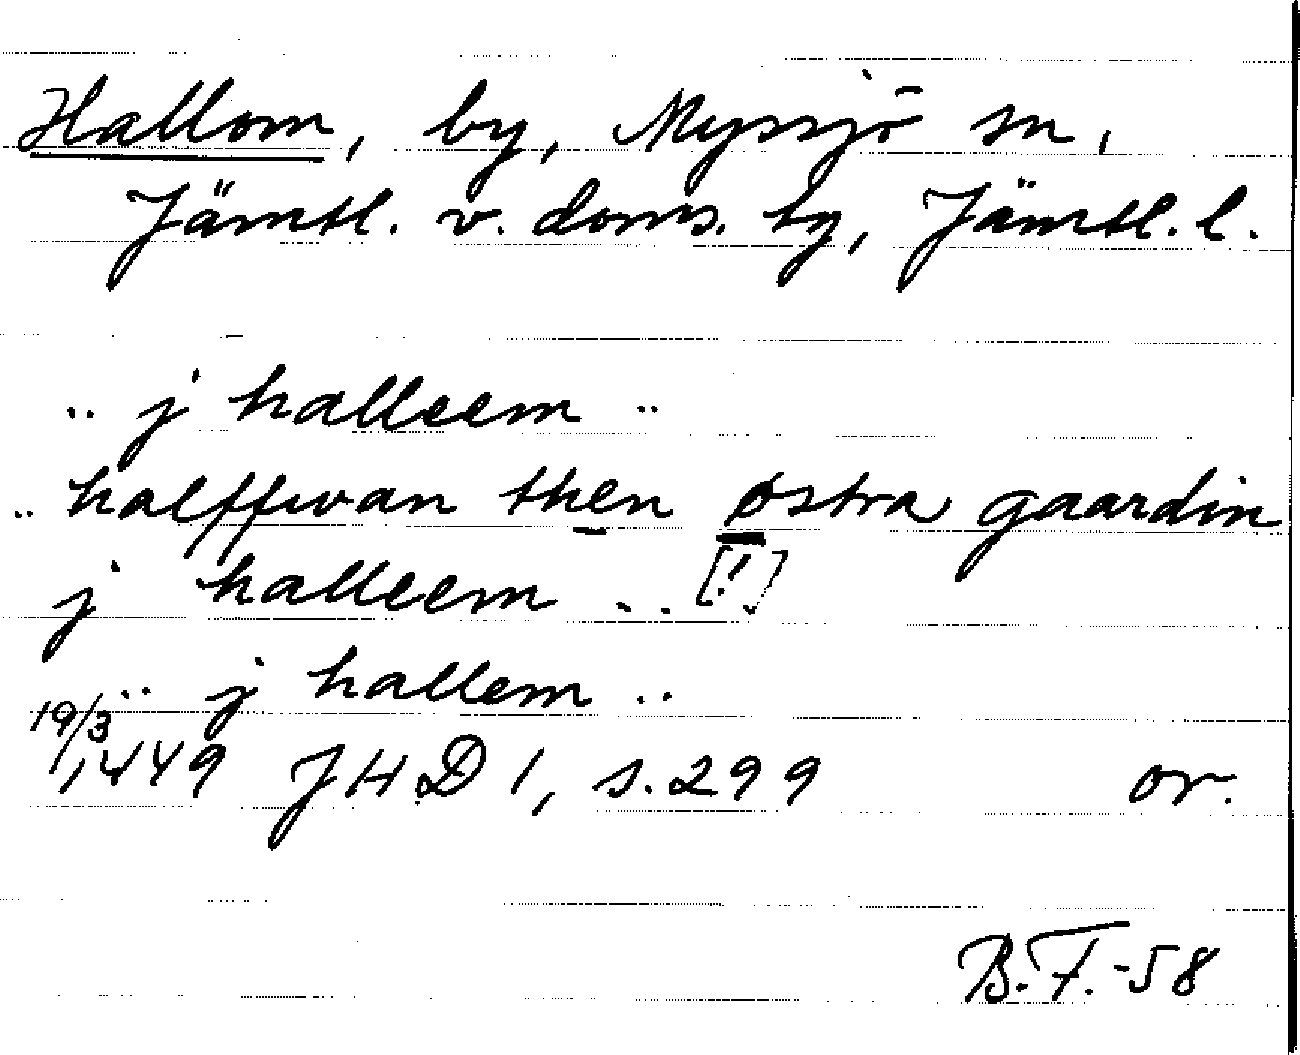 Hallom, by, Myssjö sn,
Jämtl. v. doms. tg, Jämtl. l.
.. j halleem ..
.. halffwan then østra gaardin
j halleem .. [!]
.. j hallem ..
19/3
1449 JHD 1, s. 299 or.
B.F.-58